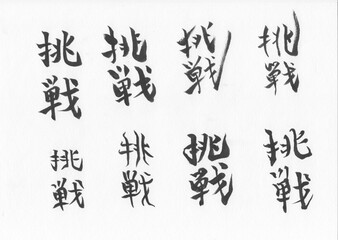 挑戦
挑戦
挑戦
挑戦
挑戦
挑戦
挑戦
挑戦